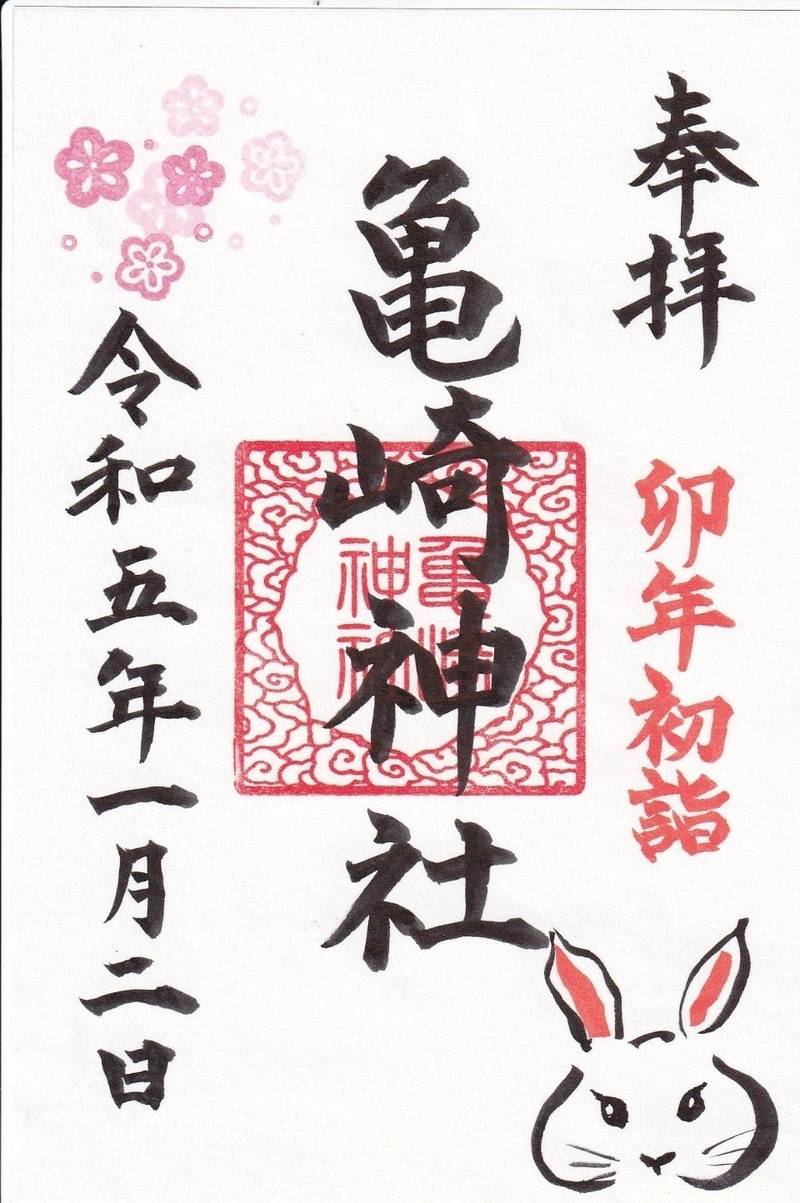 奉拝
卯年初詣
亀崎神社
亀崎
神社
令和五年一月二日